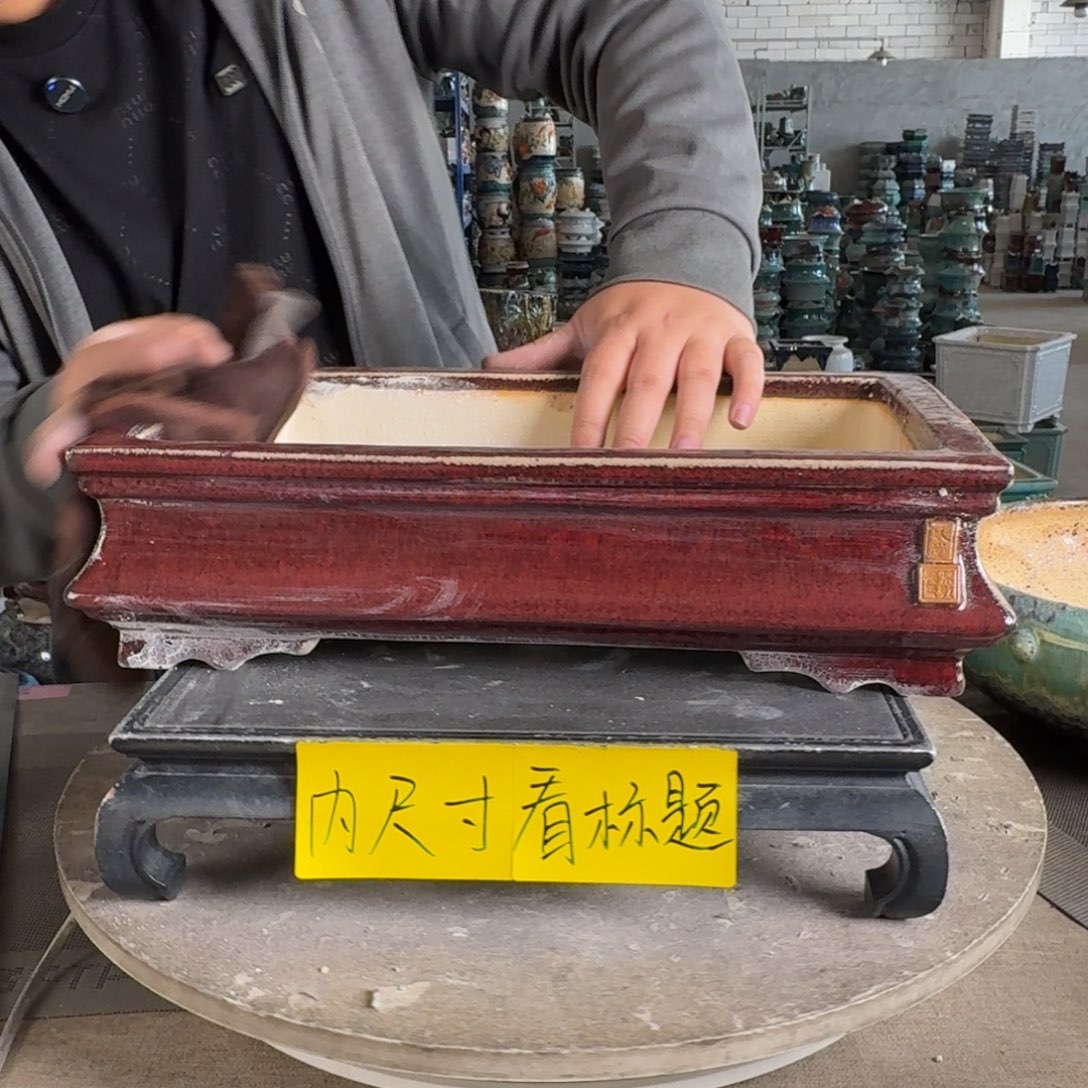 内尺寸看标题